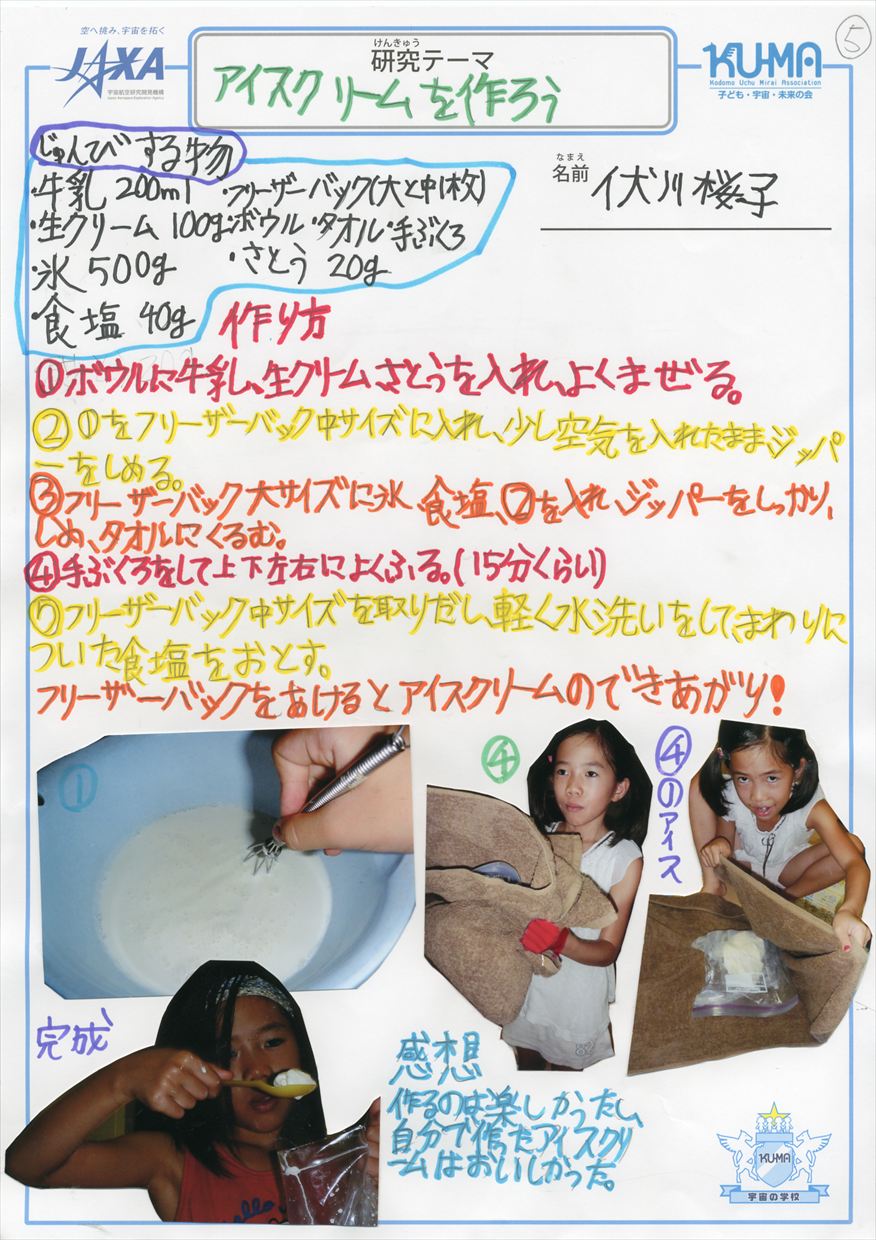 空へ挑み、宇宙を拓く
JAXA
宇宙航空研究開発機構
Japan Aerospace Exploration Agency
けんきゅう
研究テーマ
アイスクリームを作ろう
KU-MA
Kodomo Uchu Mirai Association
子ども・宇宙・未来の会
⑤
じゅんびする物
・牛乳 200ml ・フリーザーバック(大と中1枚)
・生クリーム 100g・ボウル・タオル・手ぶくろ
・氷 500g ・さとう 20g
・食塩 40g
なまえ
名前
伏川桜子
作り方
①ボウルに牛乳し、生クリームさとうを入れ、よくまぜる。
②①をフリーザーバック中サイズに入れ、少し空気を入れたまま、ジッパ
ーをしめる。
③フリーザーバック大サイズに氷、食塩、②を入れ、ジッパーをしっかり、
しめ、タオルにくるむ。
④手ぶくろをして上下左右によくふる。(15分くらい)
⑤フリーザーバック中サイズを取りだし、軽く水洗いをして、まわりに
ついた食塩をおとす。
フリーザーバックをあけるとアイスクリームのできあがり!
①
④
④のアイス
完成
感想
作るのは楽しかったし、
自分で作たアイスクリ
ームはおいしかった。
KU-MA
宇宙の学校